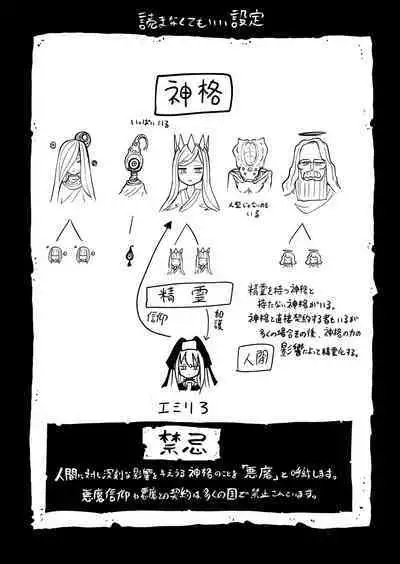 読まなくてもいい設定
神格
いっぱいいる
人型じゃないのも
いる
精霊
信仰
加護
精霊を持つ神格と
持たない神格がいる。
神格と直接契約する者もいるが
多くの場合その後、神格の力の
影響によって精霊化する。
人間
エミリ3
禁忌
人間に対し深刻な影響を与えうる神格のことを「悪魔」と呼称します。
悪魔信仰や悪魔との契約は多くの国で禁止されています。